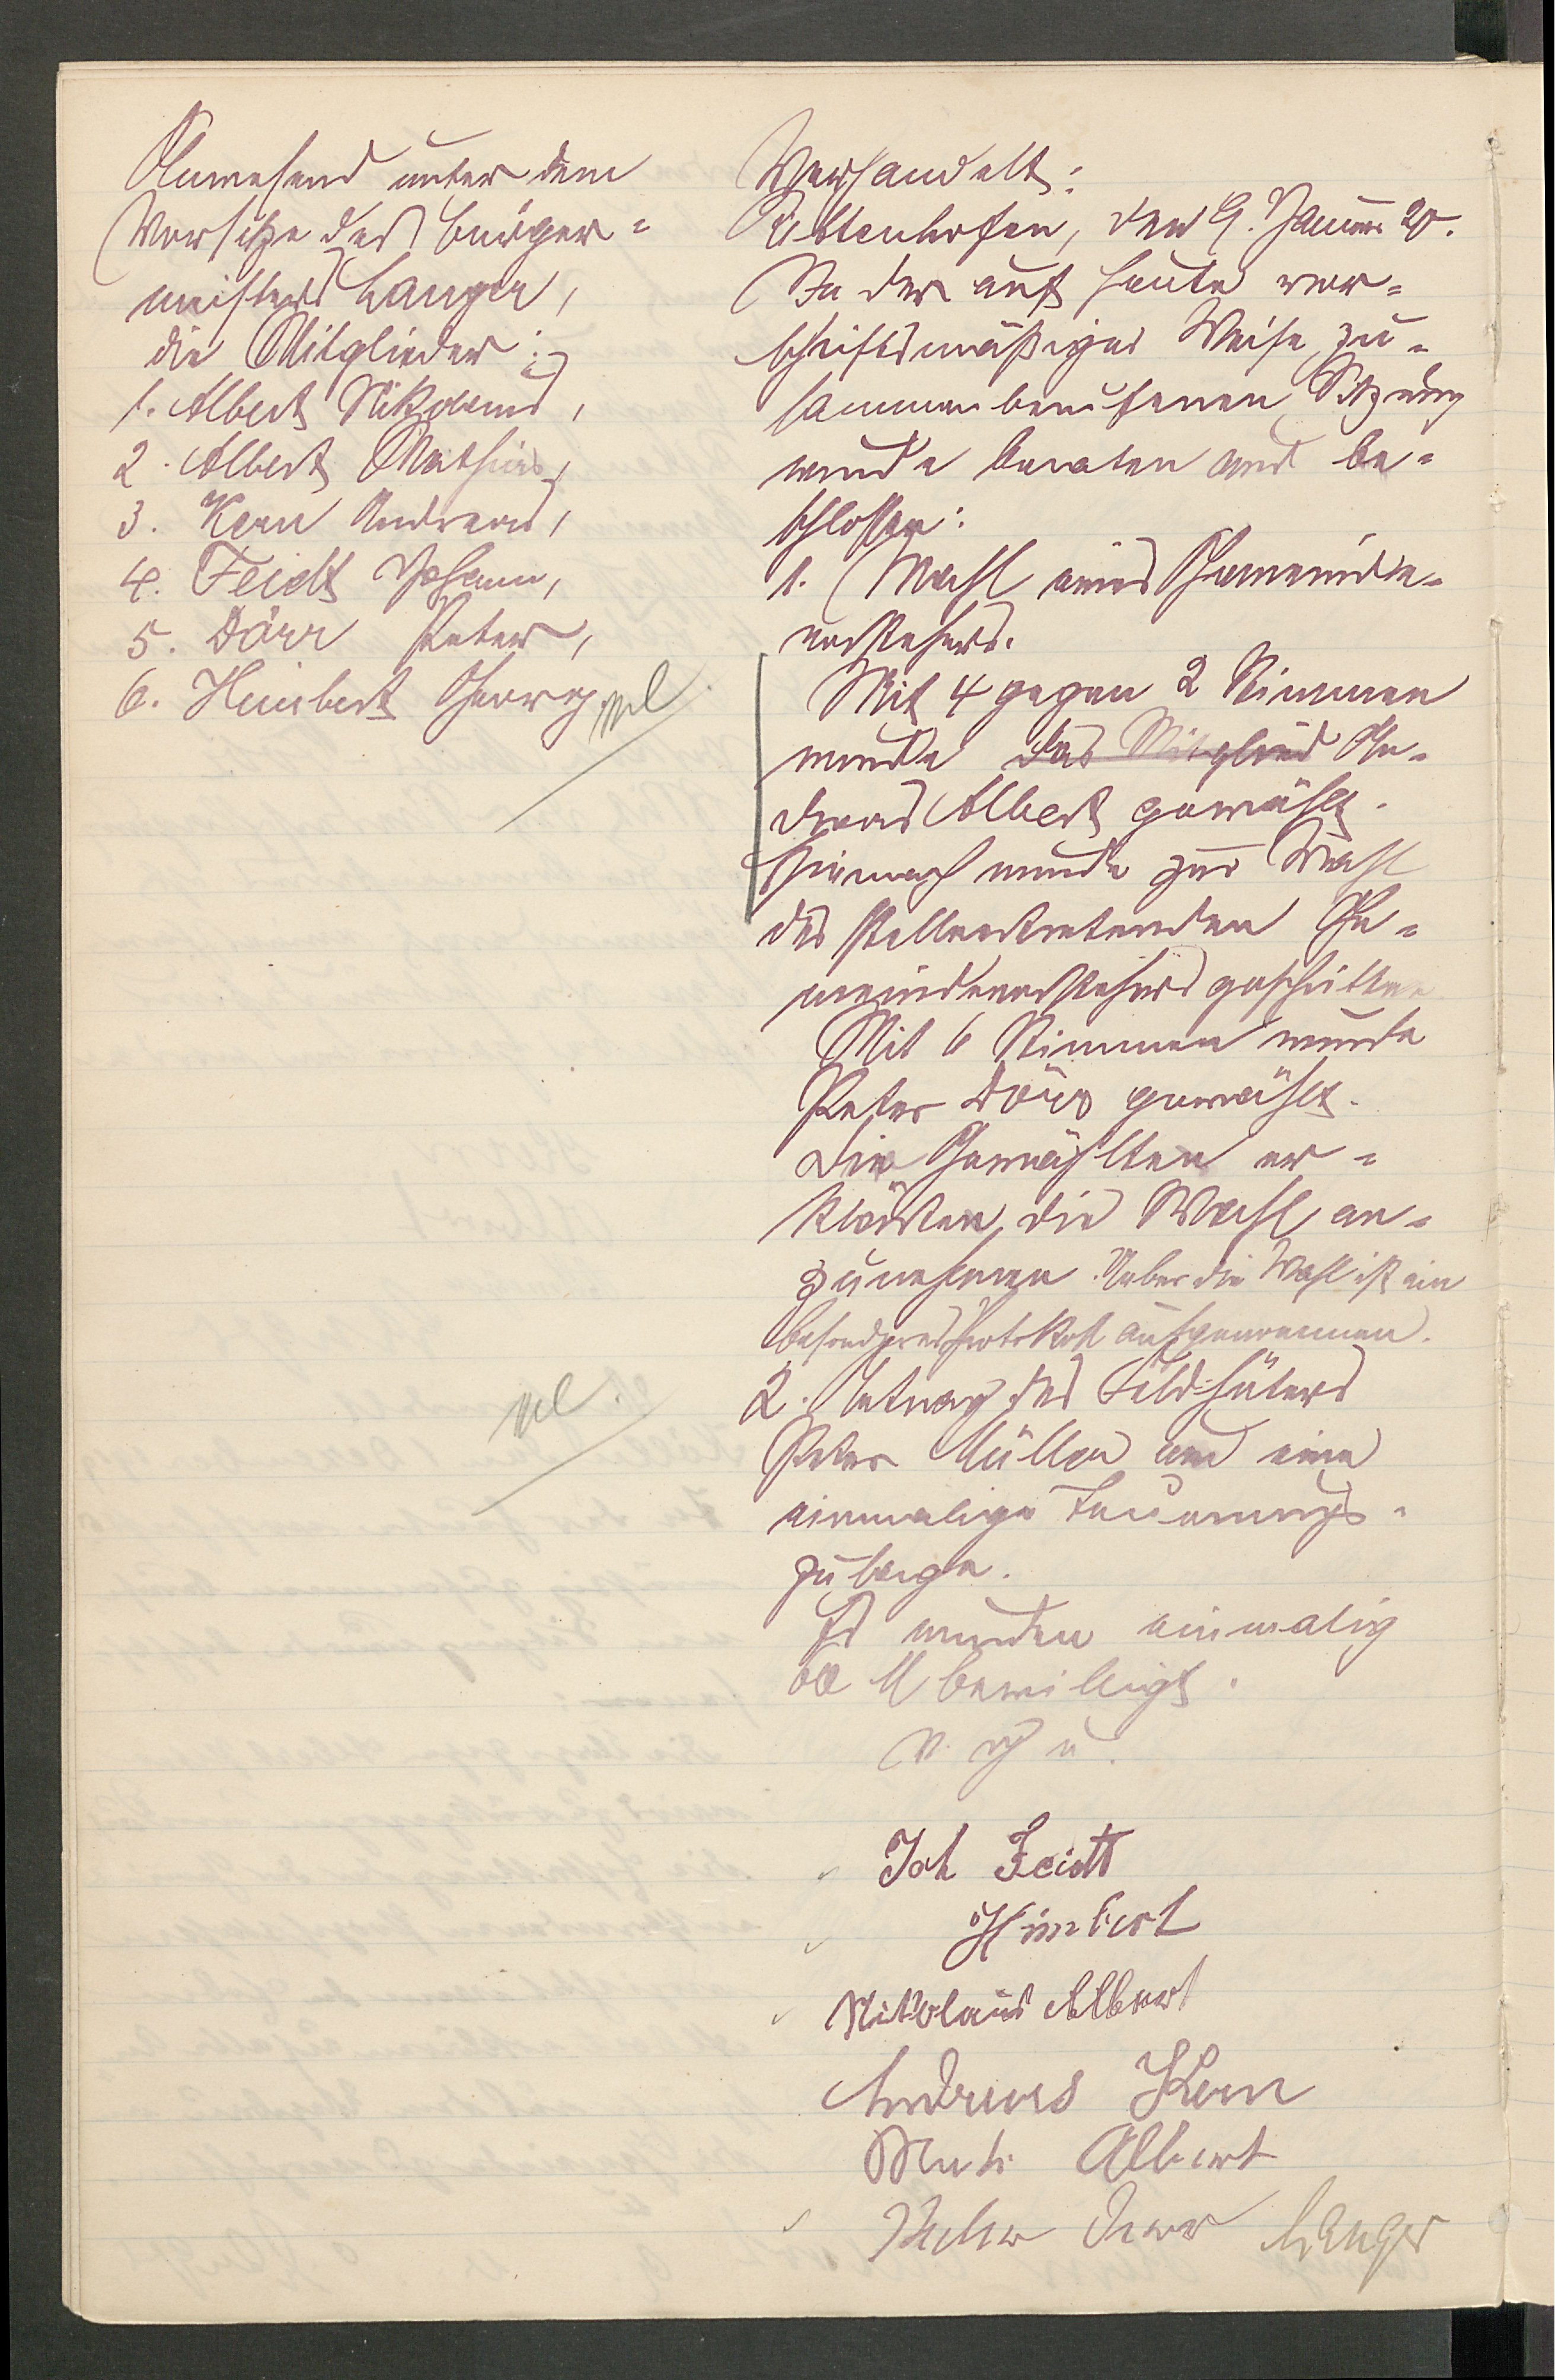 Anwesend unter dem
Vorsitze des Bürger=
meisters Langer,
die Mitglieder:
1. Albert Nikolaus,
2. Albert Mathias,
3. Kern Andreas,
4. Feidt Johann,
5. Dörr Peter,
6. Himbert Georg.
Verhandelt:
Rittenhofen, den 9. Januar 20.
In der auf heute vor=
schriftsmäßiger Weise zu=
sammenberufenen Sitzung
wurde beraten und be=
schlossen:
1. Wahl eines Gemeinde=
vorstehers.
Mit 4 gegen 2 Stimmen
wurde das Mitglied An=
dreas Albert gewählt.
Hiernach wurde zur Wahl
des stellvertretenden Ge=
meindevorstehers geschritten
Mit 6 Stimmen wurde
Peter Dörr gewählt.
Die Gewählten er=
klärten, die Wahl an=
zunehmen. Ueber die Wahl ist ein
besonderes Protokoll aufgenommen.
2. Antrag des Feldhüters
Peter Müller um eine
einmalige Teuerungs=
zulage.
Es wurden einmalig
M bewilligt.
v. g. u.
Joh Feidt
Himbert
Nikolaus Albert
Andreas Kern
Math Albert
Peter Dörr Langer